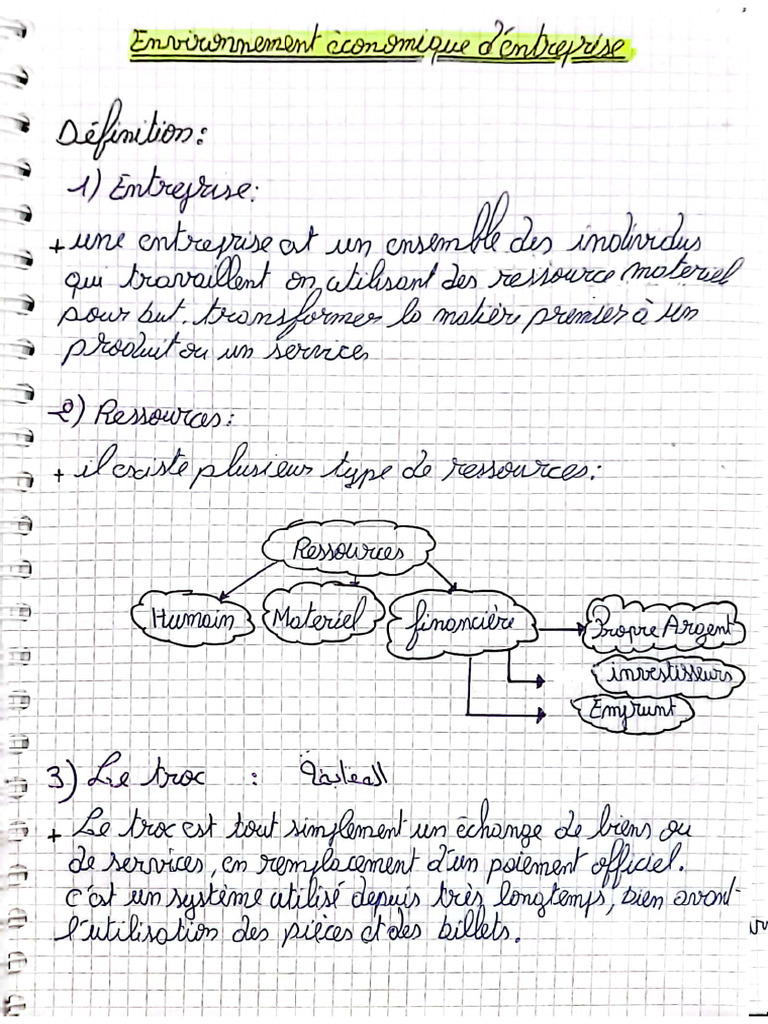 Environnement économique d'entreprise
Définition:
1) Entreprise:
+ une entreprise est un ensemble des individus
qui travaillent en utilisant des ressource materiel
pour but transformer la matièr premier à un
produit ou un services
2) Ressources:
+ il existe plusieur type de ressources:
Ressources
Humain Materiel financière Propre Argent
investisseurs
Emprunt
3) Le troc : المقايضة
+ Le troc est tout simplement un échange de biens ou
de services, en remplacement d'un paiement officiel.
C'est un système utilisé depuis très longtemps, bien avant
l'utilisation des pièces et des billets.